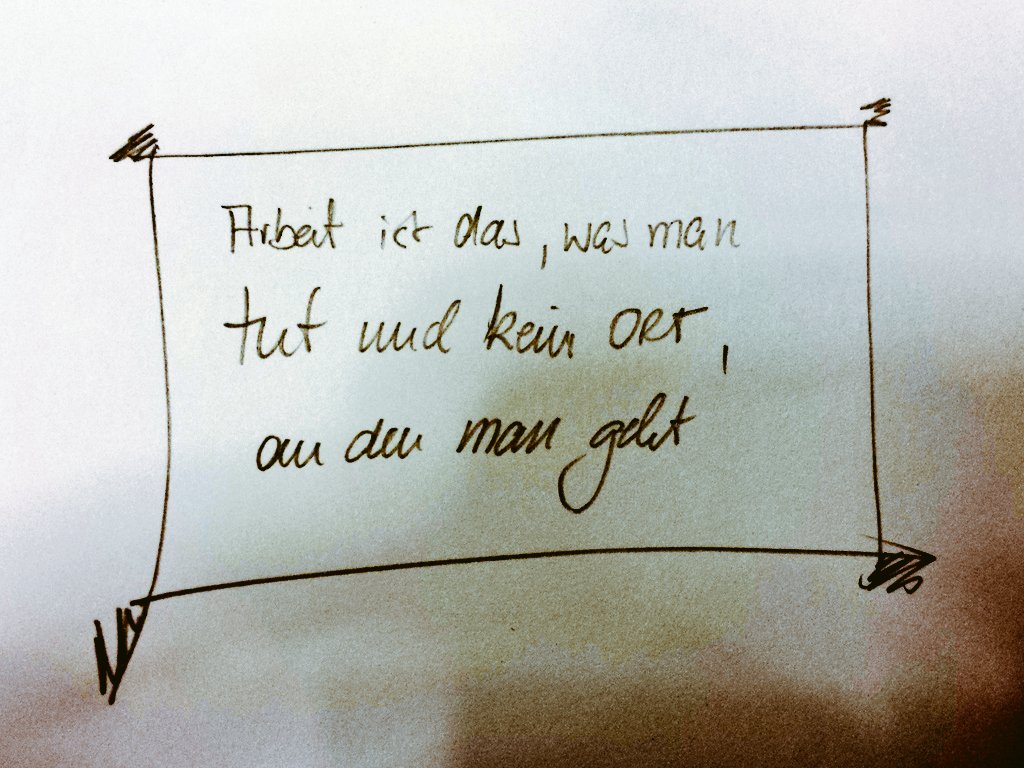 Arbeit ist das, was man
tut und kein ORT,
an den man geht